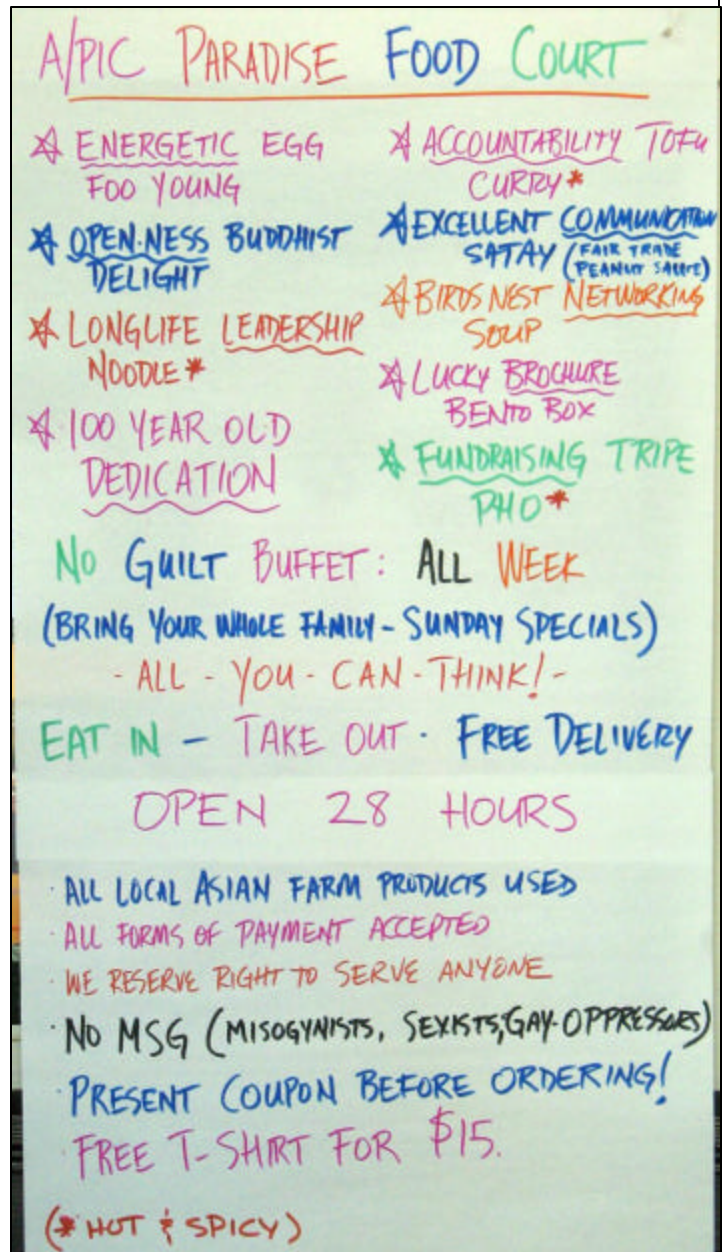 A/PIC PARADISE FOOD COURT
☆ ENERGETIC EGG
FOO YOUNG
☆ OPEN-NESS BUDDHIST
DELIGHT
☆ LONGLIFE LEADERSHIP
NOODLE *
☆ 100 YEAR OLD
DEDICATION
☆ ACCOUNTABILITY TOFU
CURRY *
☆ EXCELLENT COMMUNICATION
SATAY (FAIR TRADE
PEANUT SAUCE)
☆ BIRDS NEST NETWORKING
SOUP
☆ LUCKY BROCHURE
BENTO BOX
☆ FUNDRAISING TRIPE
PHO *
NO GUILT BUFFET: ALL WEEK
(BRING YOUR WHOLE FAMILY - SUNDAY SPECIALS)
- ALL - YOU - CAN - THINK! -
EAT IN - TAKE OUT · FREE DELIVERY
OPEN 28 HOURS
· ALL LOCAL ASIAN FARM PRODUCTS USED
· ALL FORMS OF PAYMENT ACCEPTED
· WE RESERVE RIGHT TO SERVE ANYONE
· NO MSG (MISOGYNISTS, SEXISTS, GAY-OPPRESSORS)
· PRESENT COUPON BEFORE ORDERING!
· FREE T-SHIRT FOR $15.
(* HOT & SPICY)